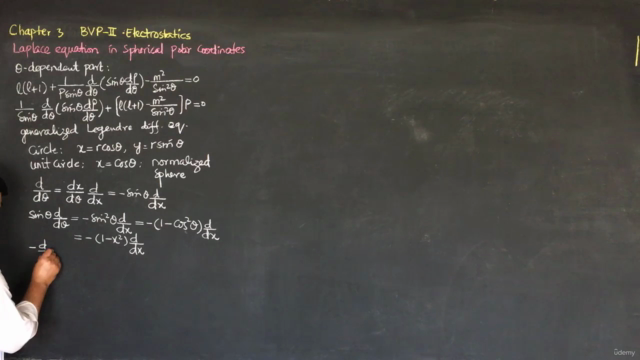 Chapter 3 BVP-II · Electrostatics
Laplace equation in Spherical Polar Coordinates
θ-dependent part:
l(l+1) + 1/(P sinθ) d/dθ (sinθ dP/dθ) - m²/sin²θ = 0
1/sinθ d/dθ (sinθ dP/dθ) + [l(l+1) - m²/sin²θ] P = 0
generalized Legendre diff. eq.
Circle: x = r cosθ, y = r sinθ
Unit Circle: x = cosθ : normalized
sphere
d/dθ = dx/dθ d/dx = - sinθ d/dx
sinθ d/dθ = - sin²θ d/dx = - (1 - cos²θ) d/dx
= - (1 - x²) d/dx
- d
udemy